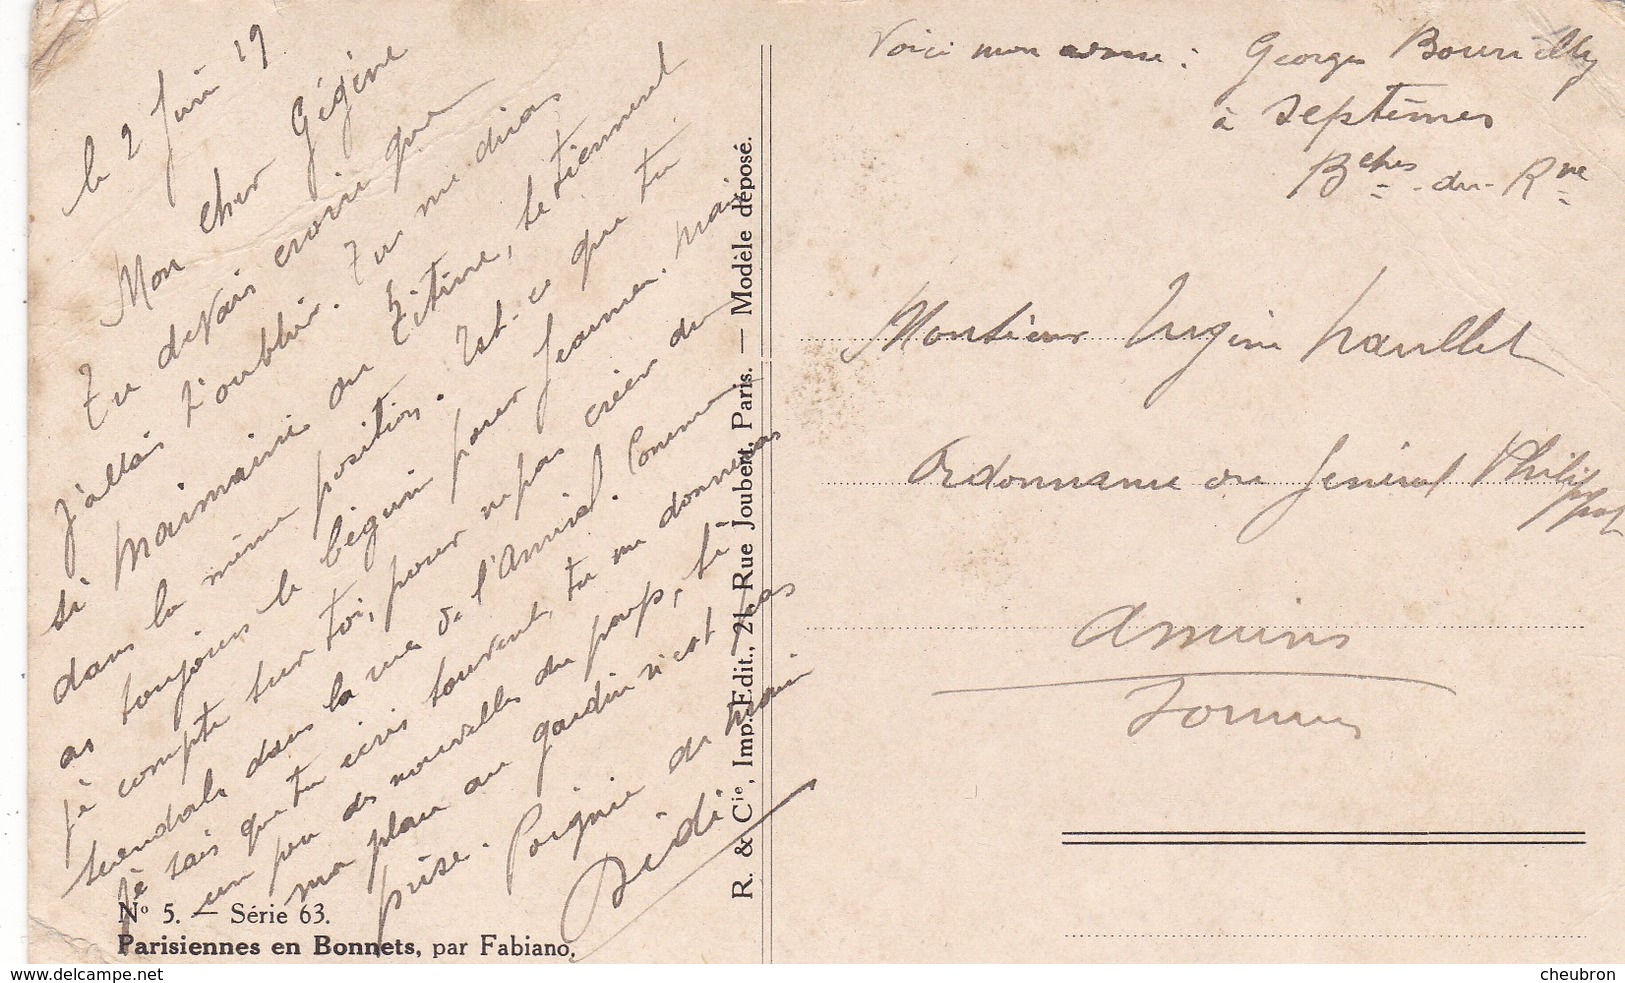 le 2 Juin 19
Mon cher Gégène
Tu devais croire que
j'allais t'oublier. Tu me diras
si maimaine ou Titine, se tiennent
dans la même position. Est-ce que tu
as toujours le béguin pour Jeanne. Mais
je compte sur toi, pour ne pas créer du
scandale dans la rue de l'Amiral. Comme
je sais que tu écris souvent, tu me donneras
un peu des nouvelles du pays, si
ma place au gardin n'est pas
prise. Poignée de main
Dédi
N° 5. — Série 63.
Parisiennes en Bonnets, par Fabiano.
R. & Cie, Imp. Edit., 21, Rue Joubert, Paris. — Modèle déposé.
Voici mon adresse : Georges
à Septèmes
Bches-du-Rne
Monsieur Eugène
Ordonnance du Général
Amiens
Somme
www.delcampe.net
cheubron